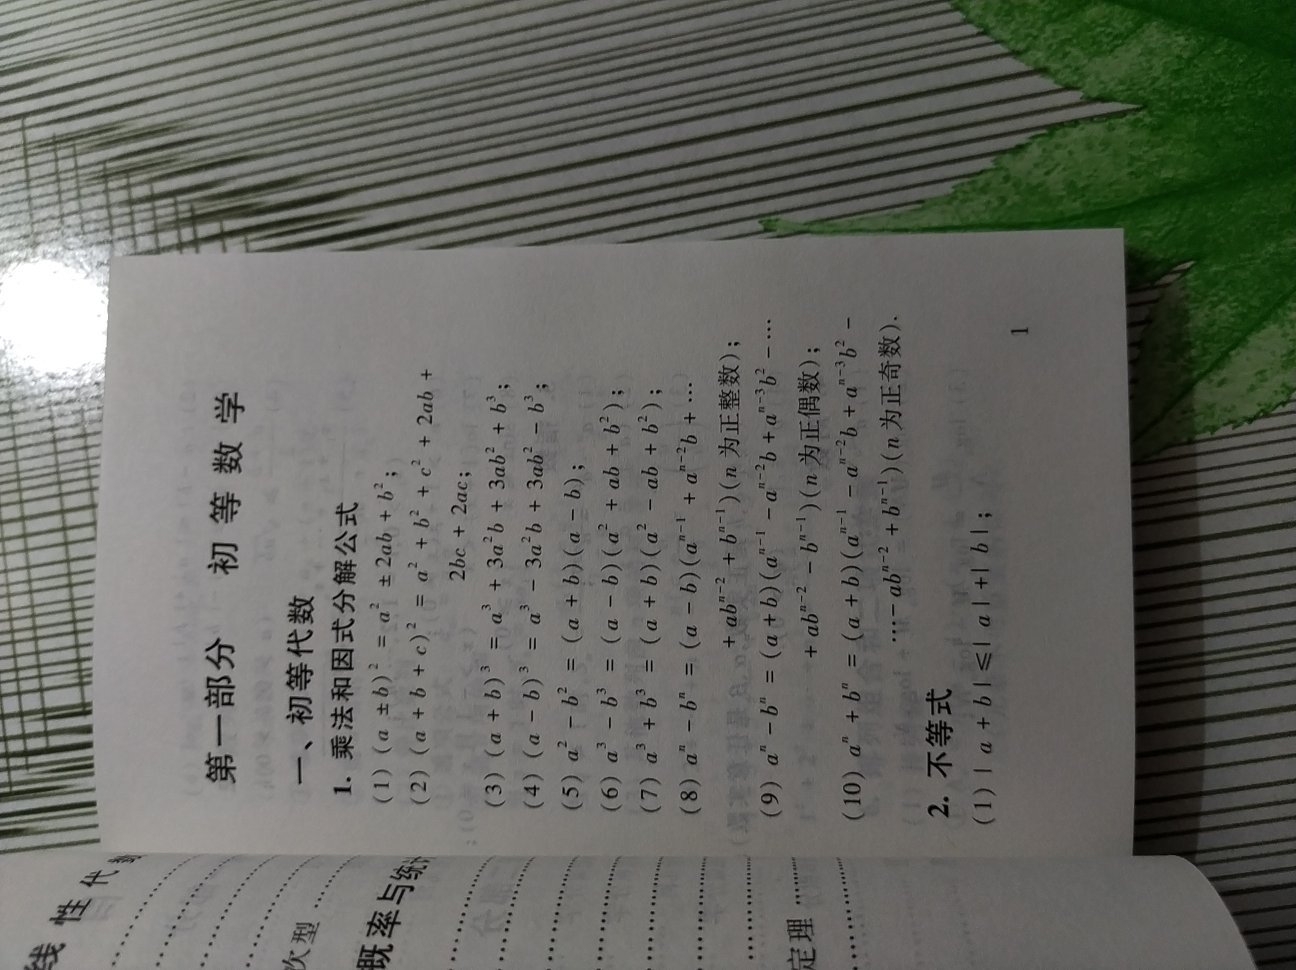 线 性 代
次型
概率与统
定理
第一部分 初 等 数 学
一、初等代数
1. 乘法和因式分解公式
(1) (a ± b)² = a² ± 2ab + b²;
(2) (a + b + c)² = a² + b² + c² + 2ab +
2bc + 2ac;
(3) (a + b)³ = a³ + 3a²b + 3ab² + b³;
(4) (a − b)³ = a³ − 3a²b + 3ab² − b³;
(5) a² − b² = (a + b)(a − b);
(6) a³ − b³ = (a − b)(a² + ab + b²);
(7) a³ + b³ = (a + b)(a² − ab + b²);
(8) aⁿ − bⁿ = (a − b)(aⁿ⁻¹ + aⁿ⁻²b + ⋯
+ abⁿ⁻² + bⁿ⁻¹)(n 为正整数);
(9) aⁿ − bⁿ = (a + b)(aⁿ⁻¹ − aⁿ⁻²b + aⁿ⁻³b² − ⋯
+ abⁿ⁻² − bⁿ⁻¹)(n 为正偶数);
(10) aⁿ + bⁿ = (a + b)(aⁿ⁻¹ − aⁿ⁻²b + aⁿ⁻³b² −
⋯ − abⁿ⁻² + bⁿ⁻¹)(n 为正奇数).
2. 不等式
(1) | a + b | ⩽ | a | + | b |;
1